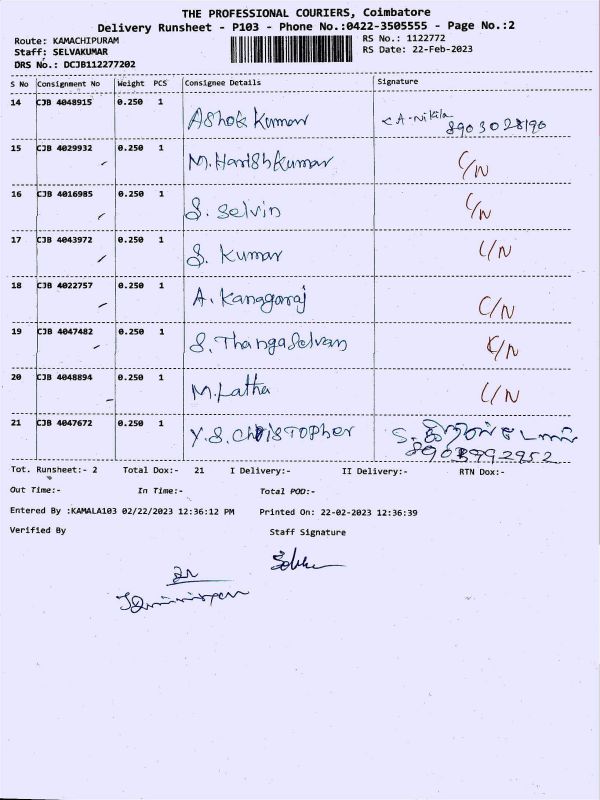 THE PROFESSIONAL COURIERS, Coimbatore
Delivery Runsheet - P103 - Phone No.:0422-3505555 - Page No.:2
Route: KAMACHIPURAM RS No.: 1122772
Staff: SELVAKUMAR RS Date: 22-Feb-2023
DRS No.: DCJB112277202
S No Consignment No Weight PCS Consignee Details Signature
14 CJB 4048915 0.250 1 Ashok Kumar A-Nikila
8903028190
15 CJB 4029932 0.250 1 M. Harish Kumar C/N
16 CJB 4016985 0.250 1 S. Selvin C/N
17 CJB 4043972 0.250 1 S. Kumar C/N
18 CJB 4022757 0.250 1 A. Kanagaraj C/N
19 CJB 4047482 0.250 1 S. Thangaselvan C/N
20 CJB 4048894 0.250 1 M. Latha C/N
21 CJB 4047672 0.250 1 Y.S. Christopher
Tot. Runsheet:- 2 Total Dox:- 21 I Delivery:- II Delivery:- RTN Dox:-
Out Time:- In Time:- Total POD:-
Entered By :KAMALA103 02/22/2023 12:36:12 PM Printed On: 22-02-2023 12:36:39
Verified By Staff Signature